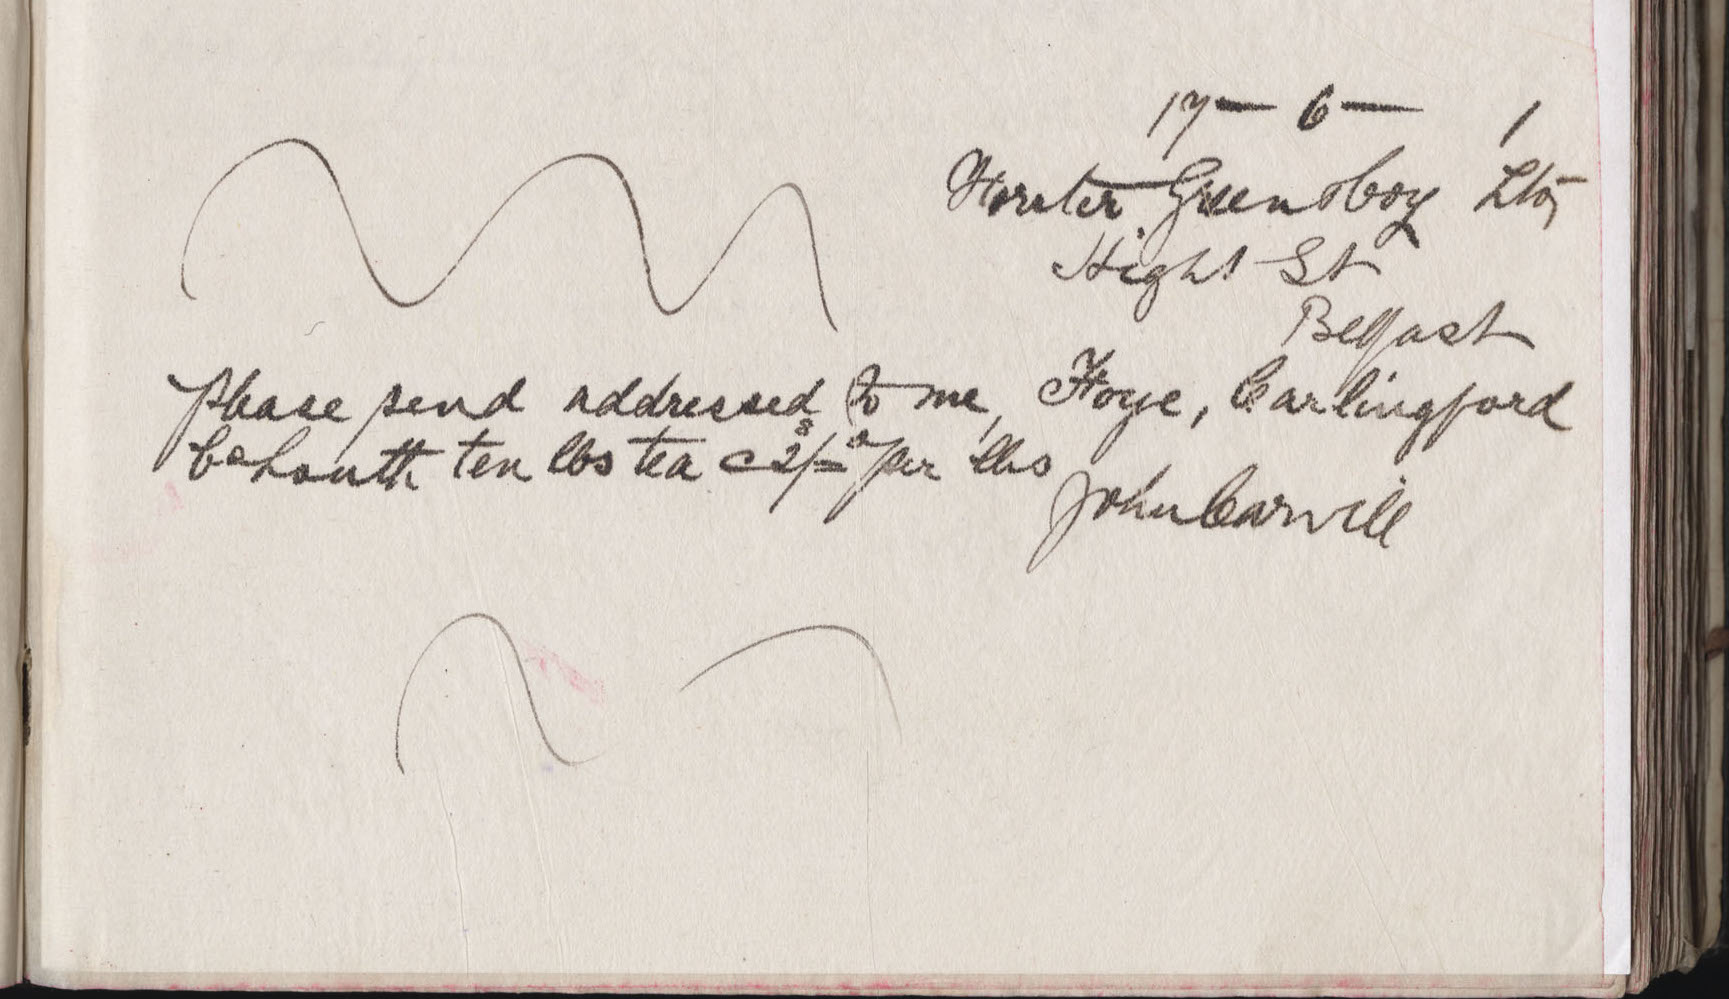 17 — 6 — 1
Forster Green & Coy Ltd,
Hight St
Belfast
Please send addressed to me, Foye, Carlingford
Co Louth ten lbs tea @ 2/= per lbs
John Carvill